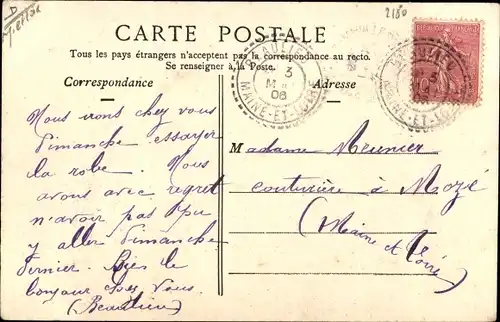 2180
CARTE POSTALE
Tous les pays étrangers n'acceptent pas la correspondance au recto.
Se renseigner à la Poste.
Correspondance
Adresse
BEAULIEU
3
08
MAINE-ET-LOIRE
Nous irons chez vous
dimanche essayer
la robe. Nous
avons avec regret
n'avoir pas pu
y aller dimanche
dernier. Bien le
bonjour chez vous.
(Beaulieu)
Madame Meunier
couturière à Mozé
(Maine et Loire)